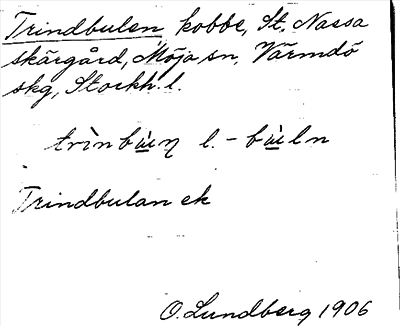 Trindbulen, kobbe, St. Nassa
skärgård, Möja sn, Värmdö
skg, Stockh. l.
l.
Trindbulan ek
O. Lundberg 1906